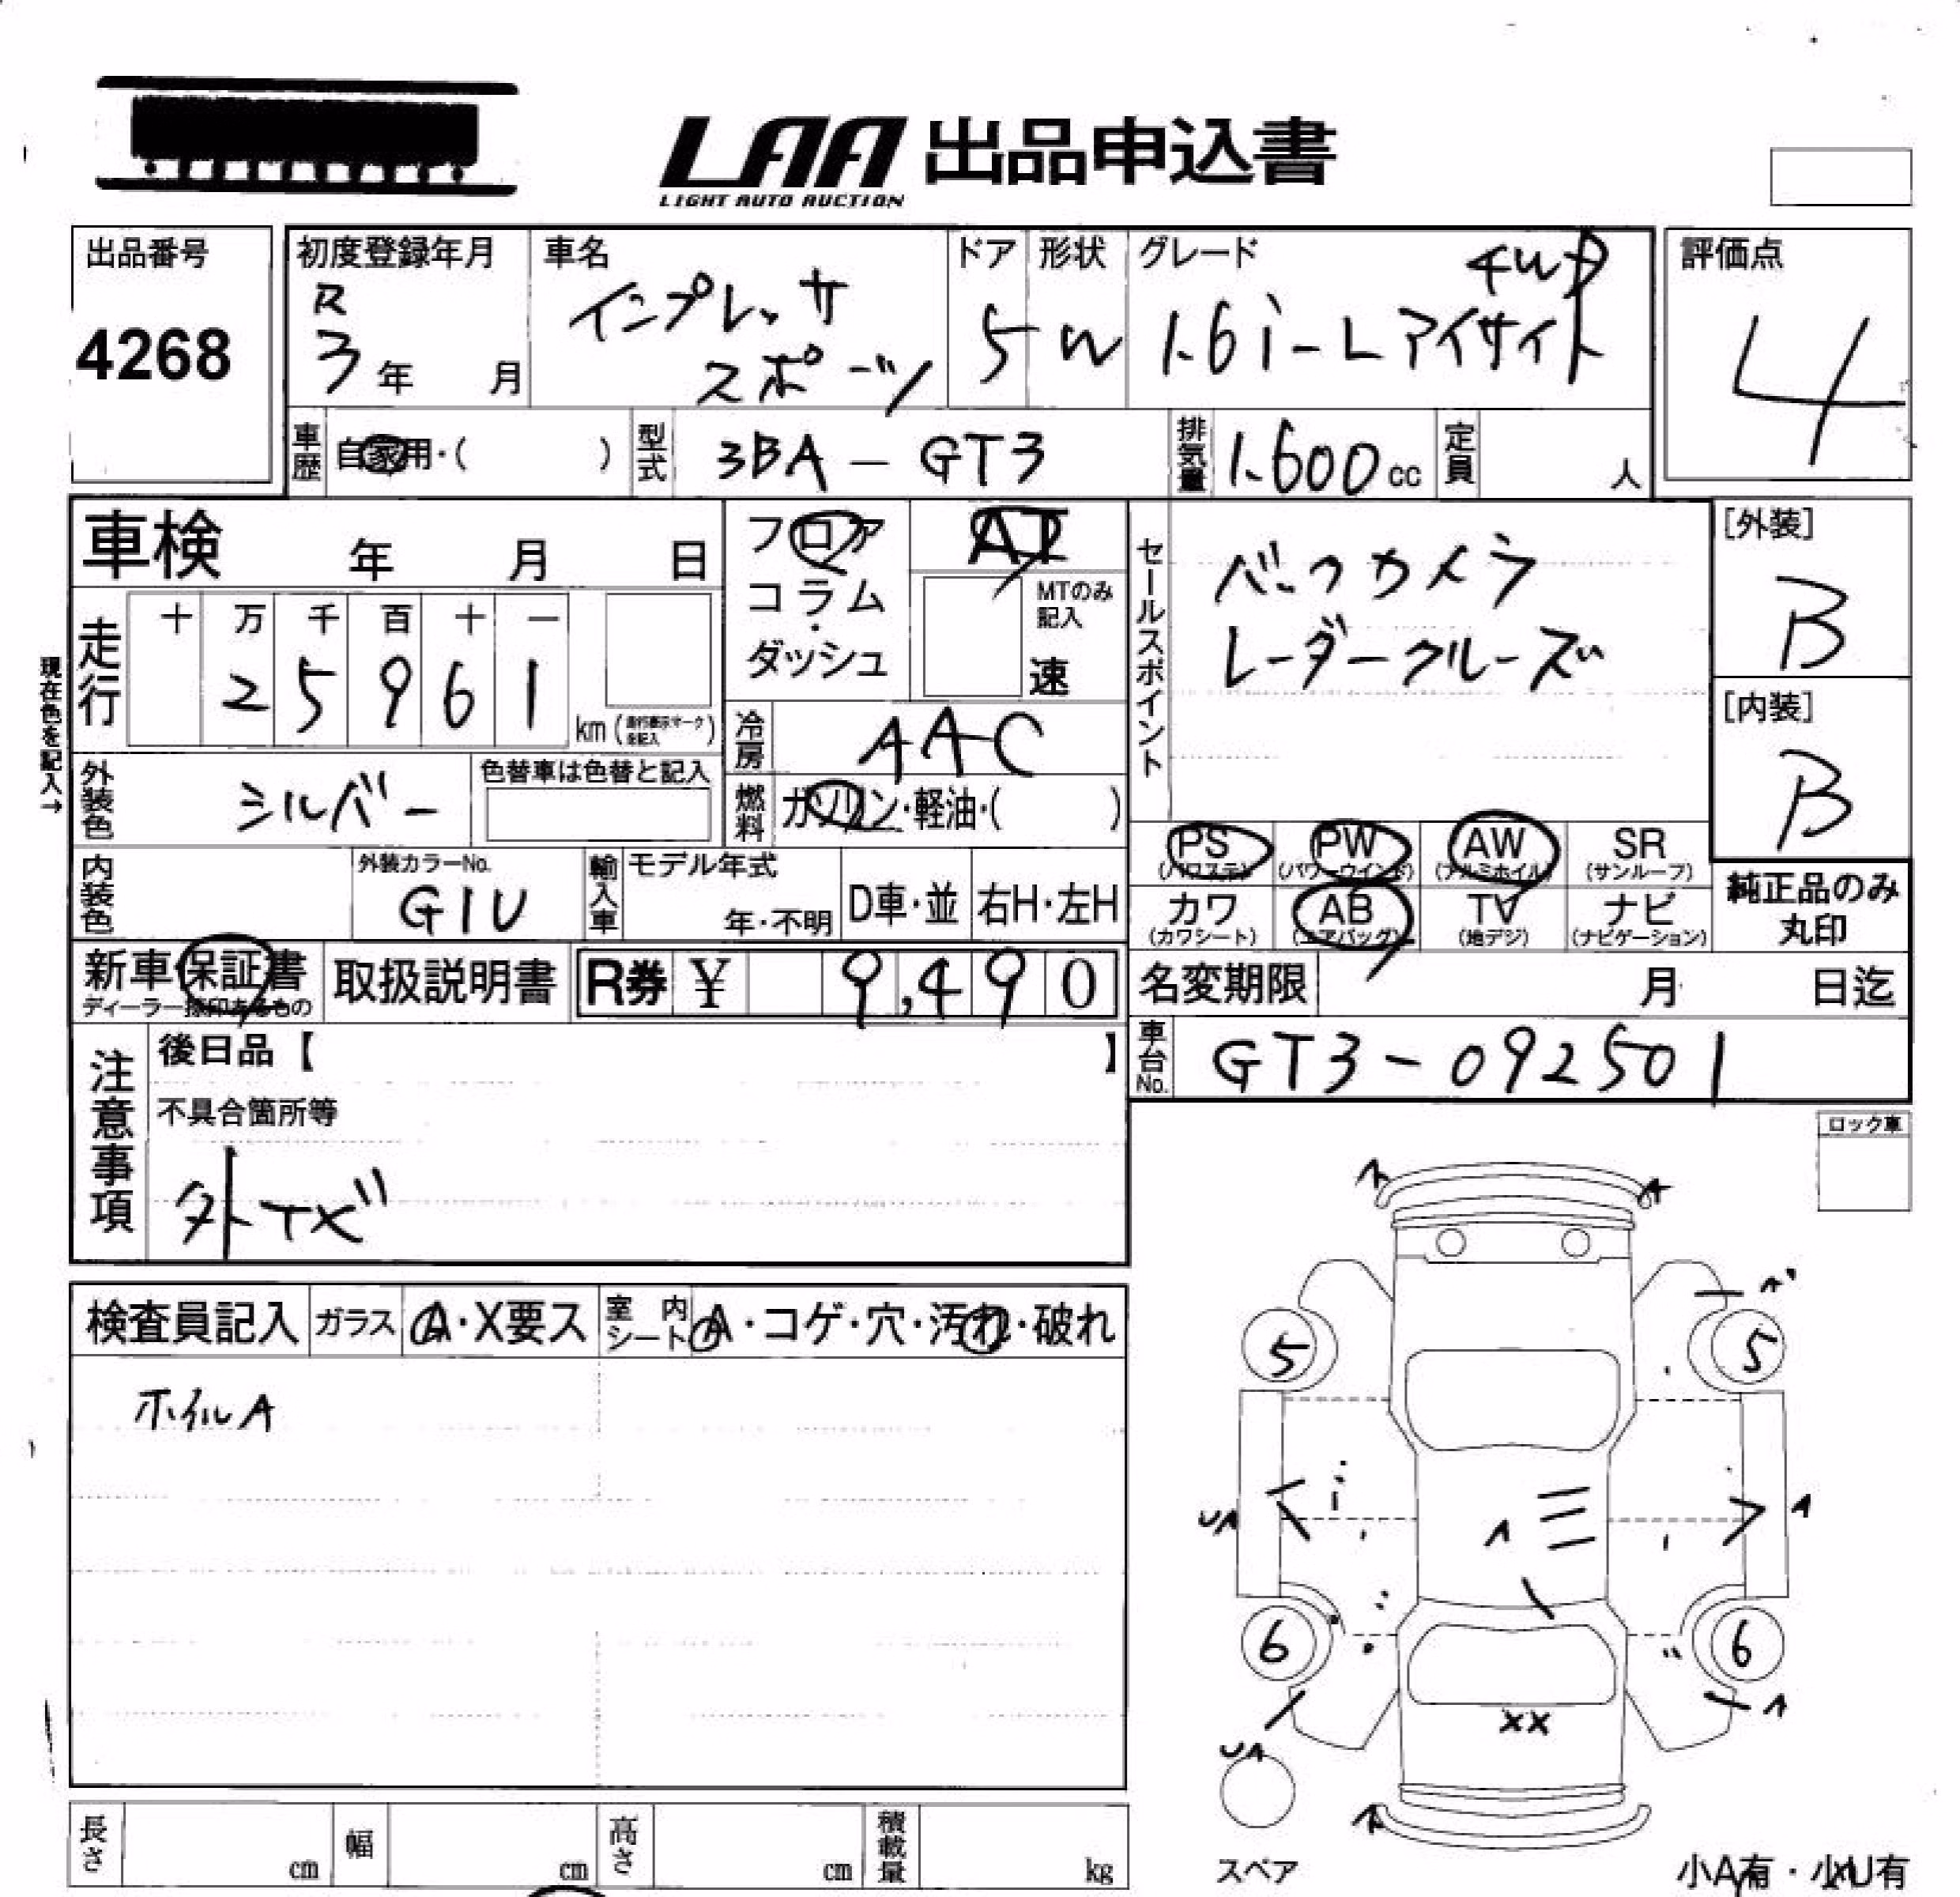 LAA 出品申込書
LIGHT AUTO AUCTION
出品番号
4268
初度登録年月
R
3年 月
車名
インプレッサ
スポーツ
ドア
5
形状
W
グレード
4WD
1.6i-Lアイサイト
評価点
4
車歴 自家用・( )
型式 3BA-GT3
排気量 1.600cc
定員 人
車検 年 月 日
フロア
コラム
・
ダッシュ
AT
MTのみ
記入
速
セールスポイント
バックカメラ
レーダークルーズ
[外装]
B
[内装]
B
現在色を記入→
走行
十 万 千 百 十 一
2 5 9 6 1
km
冷房 AAC
外装色 シルバー
色替車は色替と記入
燃料 ガソリン・軽油・( )
PS PW AW SR
(パワステ) (パワーウインド) (アルミホイル) (サンルーフ)
カワ AB TV ナビ
(カワシート) (エアバッグ) (地デジ) (ナビゲーション)
純正品のみ
丸印
内装色
外装カラーNo.
G1U
輸入車
モデル年式
年・不明
D車・並
右H・左H
新車保証書
ディーラー捺印あるもの
取扱説明書
R券 ¥ 9,490
名変期限 月 日迄
車台No. GT3-092501
注意事項
後日品【 】
不具合箇所等
外キズ
ロック車
検査員記入 ガラス A・X要ス 室内シート A・コゲ・穴・汚れ・破れ
ホイルA
A A
A
5 5
UA A A
6 6
A
XX
UA
A
スペア
小A有・小U有
長さ cm 幅 cm 高さ cm 積載量 kg